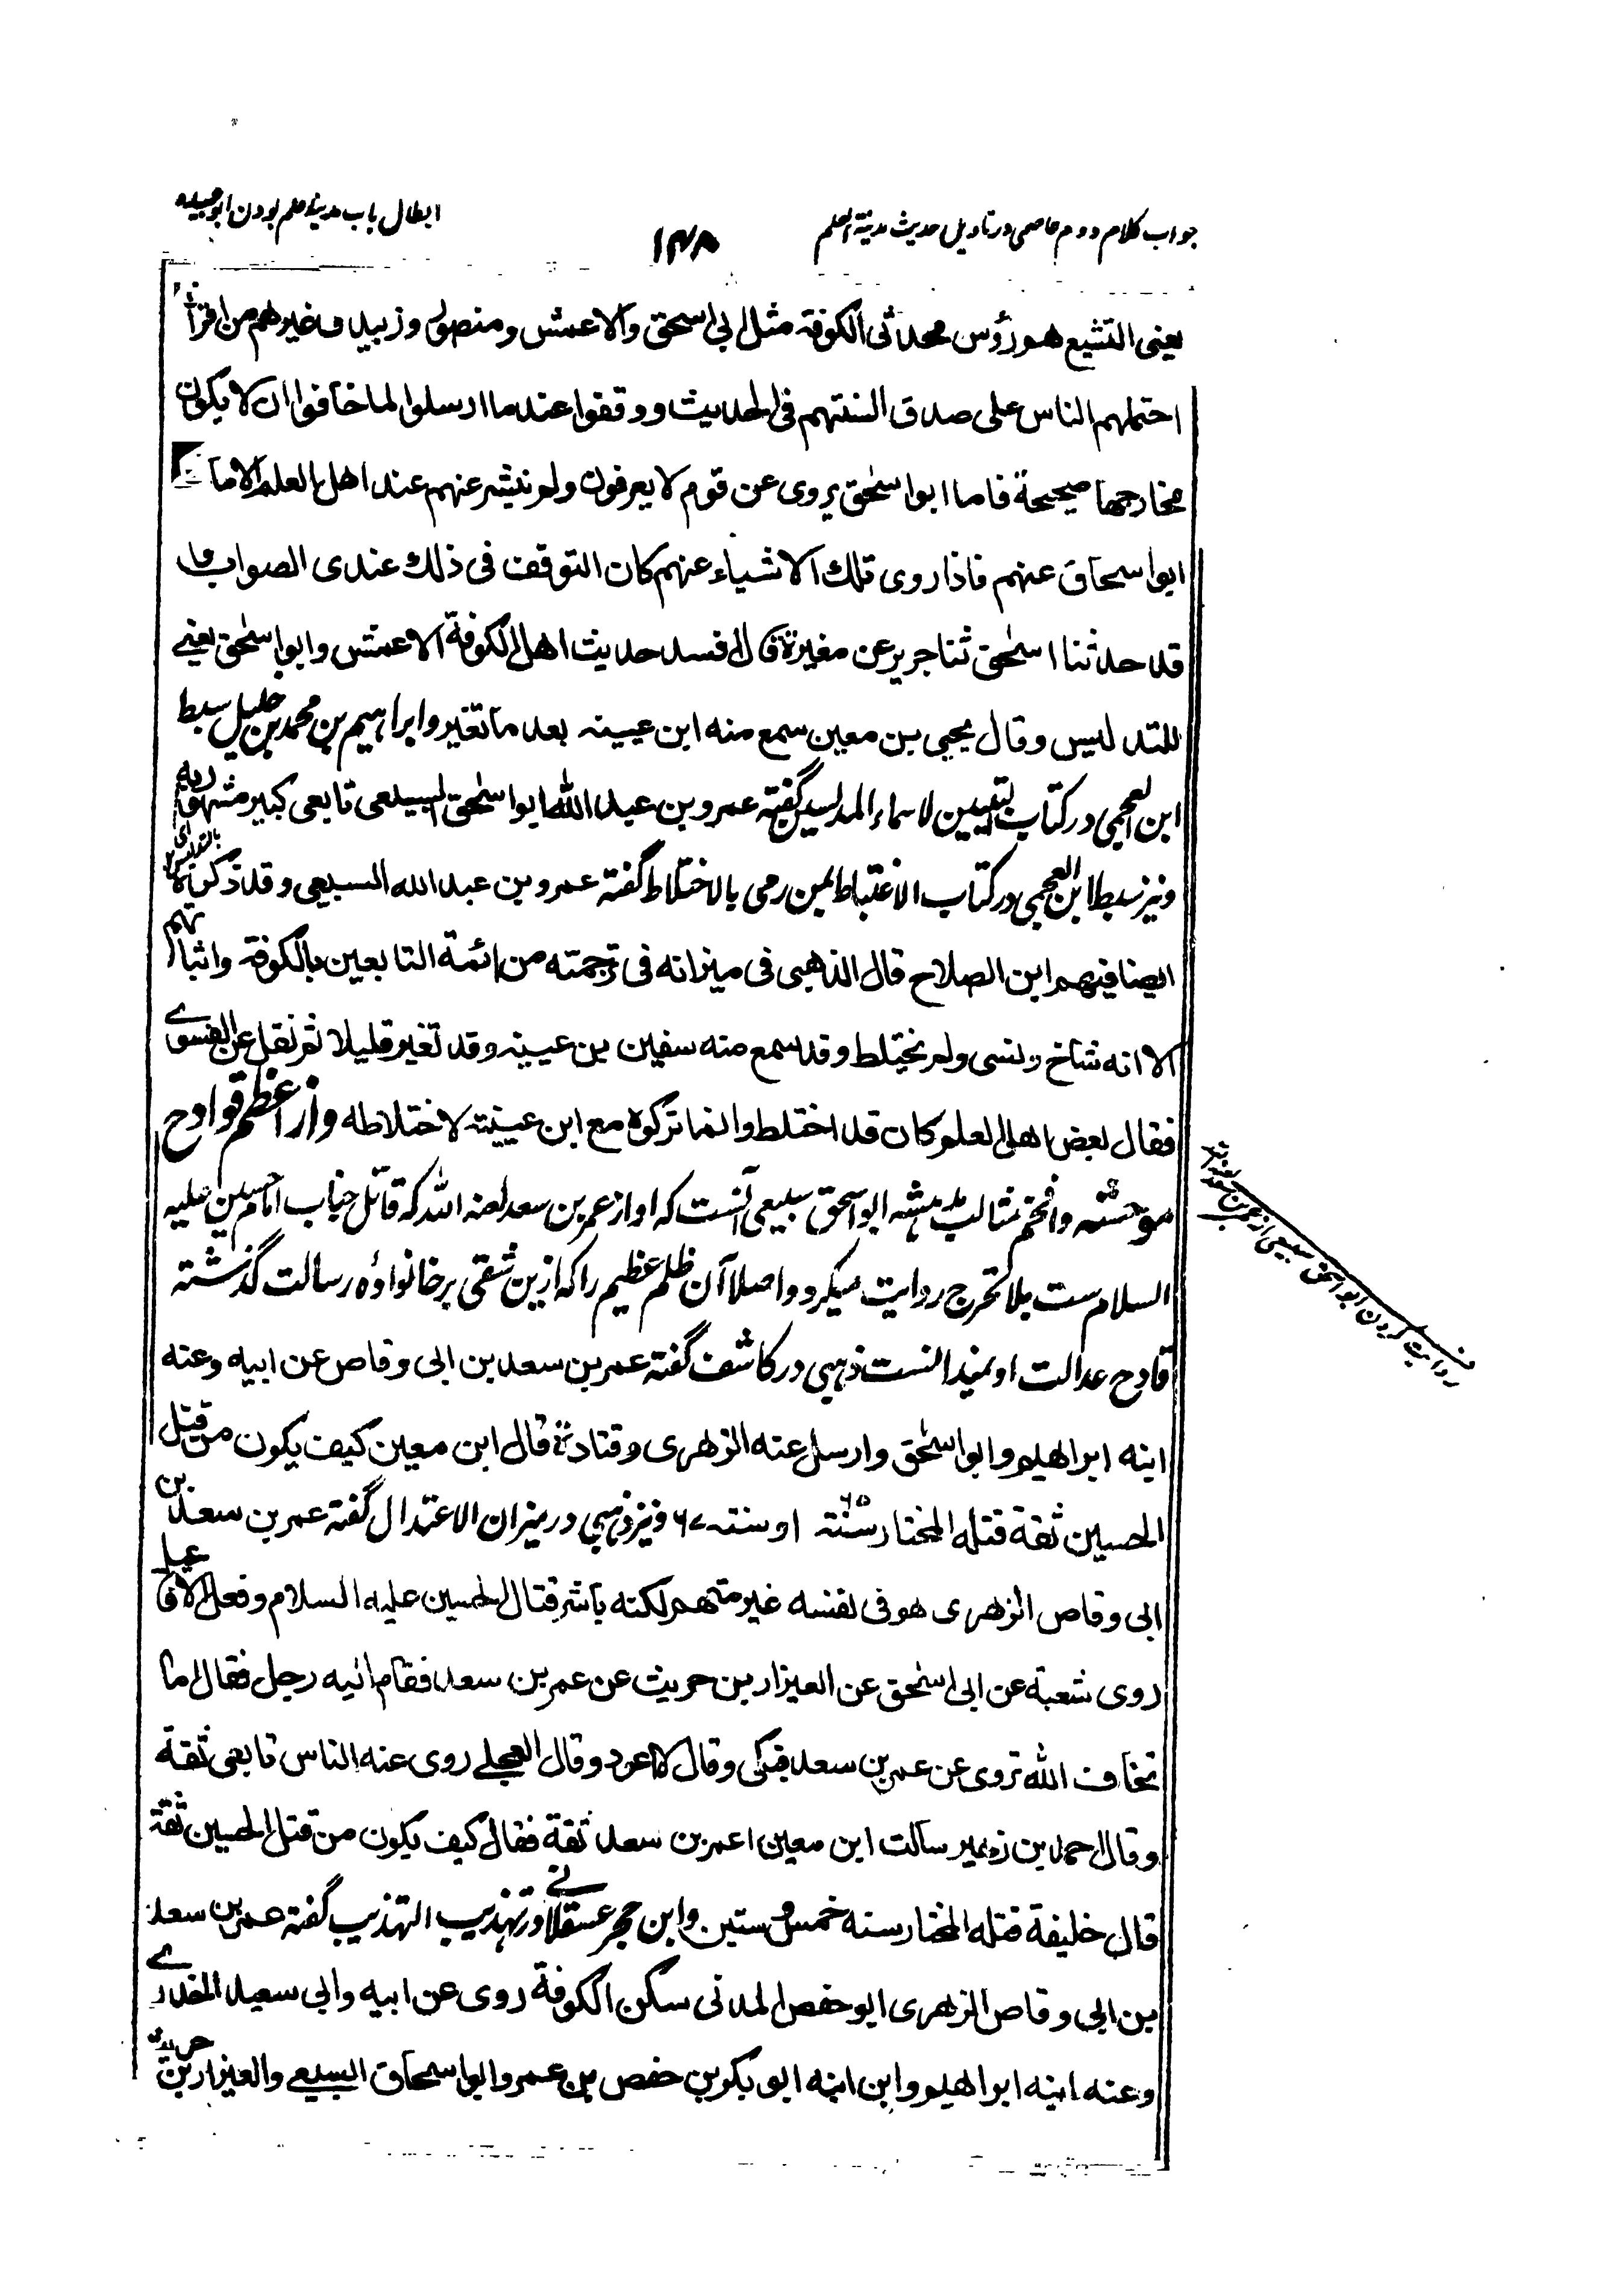 جواب کلام دوم عاصمی در تاویل حدیث مدینة العلم
۱۴۸
ابطال باب مدینهٔ علم بودن ابو عبیده
یعنی التشیع هو رؤس محدثی الکوفة مثل ابی اسحق والاعمش ومنصور وزبید وغیرهم من اقرانـ
احتملهم الناس علی صدق السنتهم فی الحدیث ووقفوا عند ما ارسلوا لما خافوا ان لا یکون
مخارجها صحیحة فاما ابو اسحق یروی عن قوم لا یعرفون ولم ینتشر عنهم عند اهل العلم الا ما
ابو اسحاق عنهم فاذا روی تلک الاشیاء عنهم کان التوقف فی ذلک عندی الصواب و
قد حدثنا اسحق ثنا جریر عن مغیرة قال افسد حدیث اهل الکوفة الاعمش وابو اسحق یعنے
للتدلیس وقال یحیی بن معین سمع منه ابن عیینه بعد ما تغیر وابراهیم بن محمد بن خلیل سبط
ابن العجمی در کتاب التبیین لاسماء المدلسین گفته عمرو بن عبد الله ابو اسحق السبیعی تابعی کبیر مشهور به
بالتدلیس
ونیز سبط ابن العجمی در کتاب الاغتباط بمن رمی بالاختلاط گفته عمرو بن عبد الله السبیعی وقد ذکره
ایضا فیهم ابن الصلاح قال الذهبی فی میزانه فی ترجمته من ائمة التابعین بالکوفة واثباتهم
الا انه شاخ ونسی ولم یختلط وقد سمع منه سفین بن عیینه وقد تغیر قلیلا ثم نقل عن الفسوے
فقال بعض اهل العلم کان قد اختلط وانما ترکوه مع ابن عیینة لاختلاطه واز اعظم قوادح
موحشه وافخم مثالب مدهشه ابو اسحق سبیعی آنست که او از عمر بن سعد لعنه الله که قاتل جناب امام حسین علیه
السلام ست بلا تحرج روایت میکرد و اصلا آن ظلم عظیم را که ازین شقی بر خانوادهٔ رسالت گذشته
قادح عدالت او نمیدانست ذهبی در کاشف گفته عمر بن سعد بن ابی وقاص عن ابیه وعنه
ابنه ابراهیم وابو اسحق وارسل عنه الزهری وقتادة قال ابن معین کیف یکون من قتل
الحسین ثقة قتله المختار سنة ۶۵ او سنة ۶۷ ونیز ذهبی در میزان الاعتدال گفته عمر بن سعد بن
ابی وقاص الزهری هو فی نفسه غیر متهم لکنه باشر قتال الحسین علیه السلام وفعل الافاعیل
روی شعبة عن ابی اسحق عن العیزار بن حریث عن عمر بن سعد فقام الیه رجل فقال اما
تخاف الله تروی عن عمر بن سعد فبکی وقال لا اعود وقال العجلے روی عنه الناس تابعی ثقة
وقال احمد بن زهیر سألت ابن معین اعمر بن سعد ثقة فقال کیف یکون من قتل الحسین ثقة
قال خلیفة قتله المختار سنه خمس وستین وابن حجر عسقلانے در تهذیب التهذیب گفته عمر بن سعد
بن ابی وقاص الزهری ابو حفص المدنی سکن الکوفة روی عن ابیه وابی سعید الخدرے
وعنه ابنه ابراهیم وابن ابنه ابو بکر بن حفص بن عمر وابو اسحاق السبیعے والعیزار بن حریث
روایت کردن ابو اسحق سبیعی از عمر بن سعد